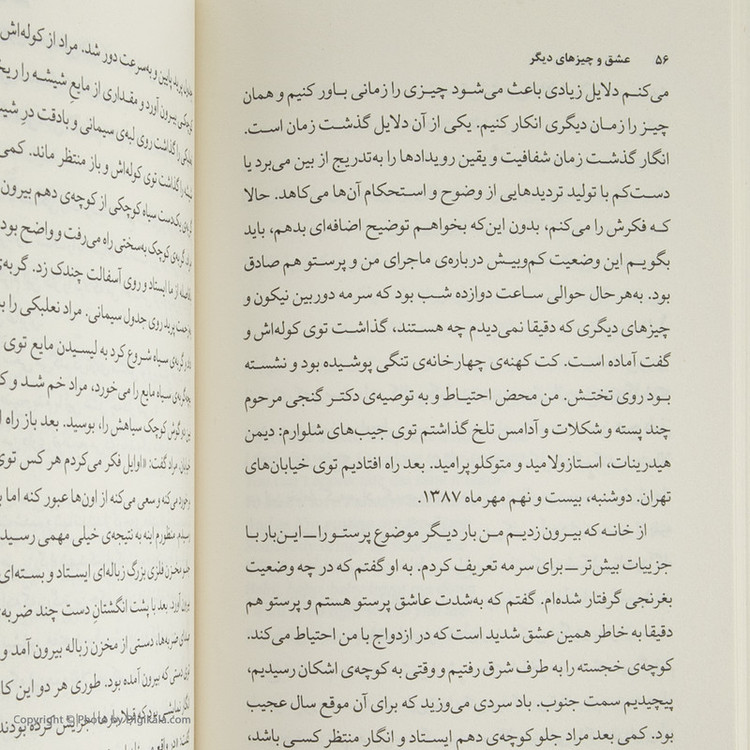 ۵۶ عشق و چیزهای دیگر
می‌کنم دلایل زیادی باعث می‌شود چیزی را زمانی باور کنیم و همان
چیز را زمان دیگری انکار کنیم. یکی از آن دلایل گذشت زمان است.
انگار گذشت زمان شفافیت و یقین رویدادها را به‌تدریج از بین می‌برد یا
دست‌کم با تولید تردیدهایی از وضوح و استحکام آن‌ها می‌کاهد. حالا
که فکرش را می‌کنم، بدون این‌که بخواهم توضیح اضافه‌ای بدهم، باید
بگویم این وضعیت کم‌وبیش درباره‌ی ماجرای من و پرستو هم صادق
بود. به‌هرحال حوالی ساعت دوازده شب بود که سرمه دوربین نیکون و
چیزهای دیگری که دقیقا نمی‌دیدم چه هستند، گذاشت توی کوله‌اش و
گفت آماده است. کت کهنه‌ی چهارخانه‌ی تنگی پوشیده بود و نشسته
بود روی تختش. من محض احتیاط و به توصیه‌ی دکتر گنجی مرحوم
چند پسته و شکلات و آدامس تلخ گذاشتم توی جیب‌های شلوارم: دیمن
هیدرینات، استازولامید و متوکلوپرامید. بعد راه افتادیم توی خیابان‌های
تهران. دوشنبه، بیست و نهم مهرماه ۱۳۸۷.
از خانه که بیرون زدیم من بار دیگر موضوع پرستو را ــ این‌بار با
جزییات بیش‌تر ــ برای سرمه تعریف کردم. به او گفتم که در چه وضعیت
بغرنجی گرفتار شده‌ام. گفتم که به‌شدت عاشق پرستو هستم و پرستو هم
دقیقا به خاطر همین عشق شدید است که در ازدواج با من احتیاط می‌کند.
کوچه‌ی خجسته را به طرف شرق رفتیم و وقتی به کوچه‌ی اشکان رسیدیم،
پیچیدیم سمت جنوب. باد سردی می‌وزید که برای آن موقع سال عجیب
بود. کمی بعد مراد جلو کوچه‌ی دهم ایستاد و انگار منتظر کسی باشد،
پایین و به‌سرعت دور شد. مراد از کوله‌اش
بیرون آورد و مقداری از مایع شیشه را
را گذاشت روی لبه‌ی سیمانی و بادقت درِ
را گذاشت توی کوله‌اش و باز منتظر ماند. کمی
یک‌دست سیاه کوچکی از کوچه‌ی دهم بیرون
گربه‌ی کوچک به‌سختی راه می‌رفت و واضح بود
از ما ایستاد و روی آسفالت چندک زد. گربه‌ی
پرید روی جدول سیمانی. مراد نعلبکی را
گربه‌ی سیاه شروع کرد به لیسیدن مایع توی
سیاه مایع را می‌خورد، مراد خم شد و
گوش کوچک سیاهش را، بوسید. بعد باز راه
مراد گفت: «اوایل فکر می‌کردم هر کس توی
می‌کنه و سعی می‌کنه از اون‌ها عبور کنه اما
منظورم اینه به نتیجه‌ی خیلی مهمی رسیدم
مخزن فلزی بزرگ زباله‌ای ایستاد و بسته‌ای
آورد. بعد با پشت انگشتانِ دست چند ضربه
ضربه‌ها، دستی از مخزن زباله بیرون آمد و
که بیرون آمده بود. طوری هر دو این
Copyright © Photo by Digikala.com